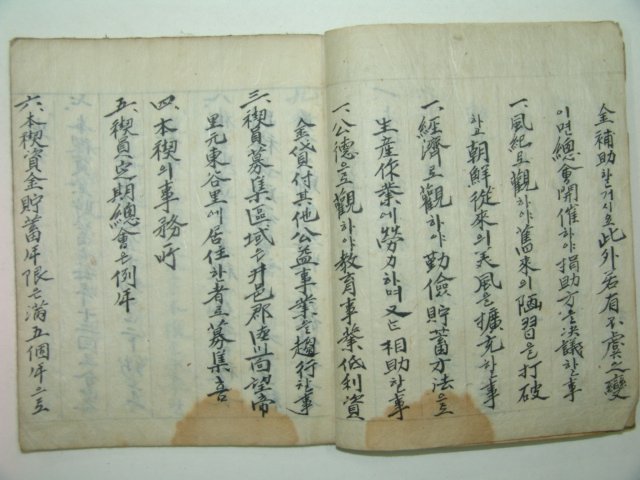 金補助할거시로此外若有不虞之變
이면總會開催하야捐助方을決議한事
一、風紀로觀하야舊來의陋習을打破
하고朝鮮從來의美風을擴充한事
一、經濟로觀하야勤儉貯蓄方法으로
生産作業에勞力하며又는相助한事
一、公德으로觀하야教育事業低利資
金貸付其他公益事業을趨行한事
三、稧員募集區域은井邑郡 面望帝
里元東谷里에居住한者로募集
四、本稧의事務所
五、稧員定期總會는例年
六、本稧資金貯蓄年限은滿五個年으로